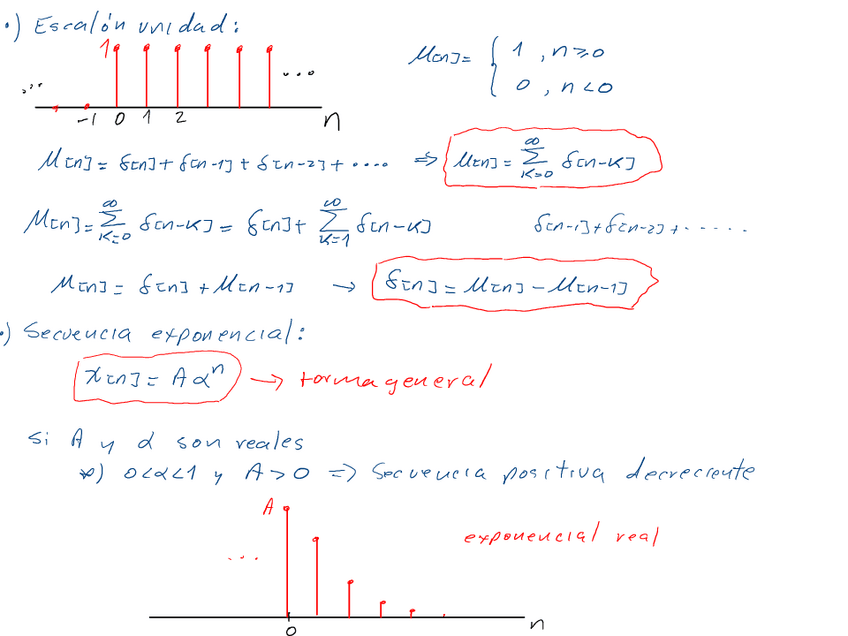 •) Escalón unidad:
1
...
...
-1 0 1 2 n
μ[n] = { 1 , n ≥ 0
0 , n < 0
μ[n] = δ[n] + δ[n-1] + δ[n-2] + .... ⇒ μ[n] = ∑_{k=0}^{∞} δ[n-k]
μ[n] = ∑_{k=0}^{∞} δ[n-k] = δ[n] + ∑_{k=1}^{∞} δ[n-k] δ[n-1] + δ[n-2] + ......
μ[n] = δ[n] + μ[n-1] → δ[n] = μ[n] - μ[n-1]
•) Secuencia exponencial:
x[n] = A α^n → forma general
si A y α son reales
*) 0<α<1 y A>0 ⇒ Secuencia positiva decreciente
A
exponencial real
...
0 n